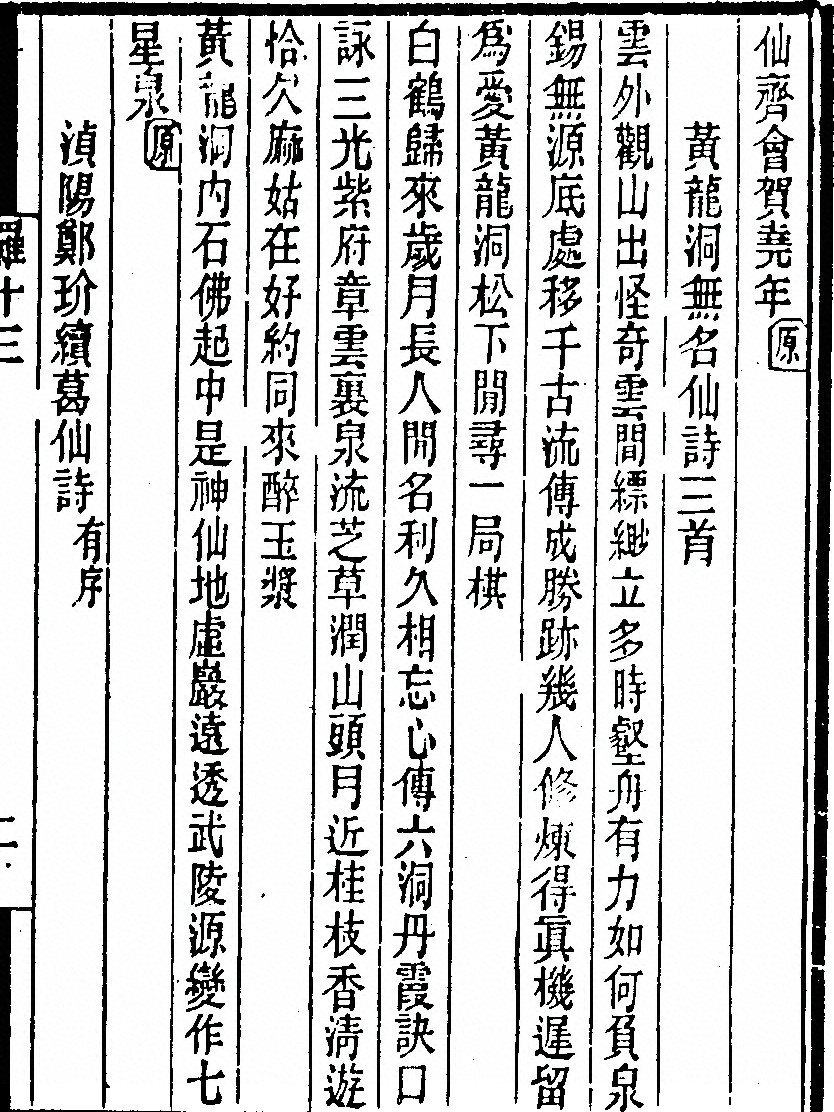 仙齊會賀堯年原
黃龍洞無名仙詩三首
雲外觀山出怪奇雲間縹緲立多時壑舟有力如何負泉
錫無源底處移千古流傳成勝跡幾人修煉得眞機遲留
爲愛黃龍洞松下閒尋一局棋
白鶴歸來歲月長人間名利久相忘心傳六洞丹霞訣口
詠三光紫府章雲裏泉流芝草潤山頭月近桂枝香淸遊
恰欠麻姑在好約同來醉玉漿
黃龍洞內石佛起中是神仙地虛巖遠透武陵源變作七
星泉原
湞陽鄭玠續葛仙詩有序
羅十三
二